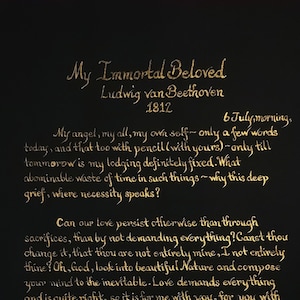 My Immortal Beloved
Ludwig van Beethoven
1812
6 July, morning,
My angel, my all, my own self ~ only a few words
today, and that too with pencil (with yours) ~ only till
tommorow is my lodging definitely fixed. What
abominable waste of time in such things ~ why this deep
grief, where necessity speaks?
Can our love persist otherwise than through
sacrifices, than by not demanding everything? Canst thou
change it, that thou are not entirely mine, I not entirely
thine? Oh, God, look into beautiful Nature and compose
your mind to the inevitable. Love demands everything
and is quite right, so it is for me with you, for you with